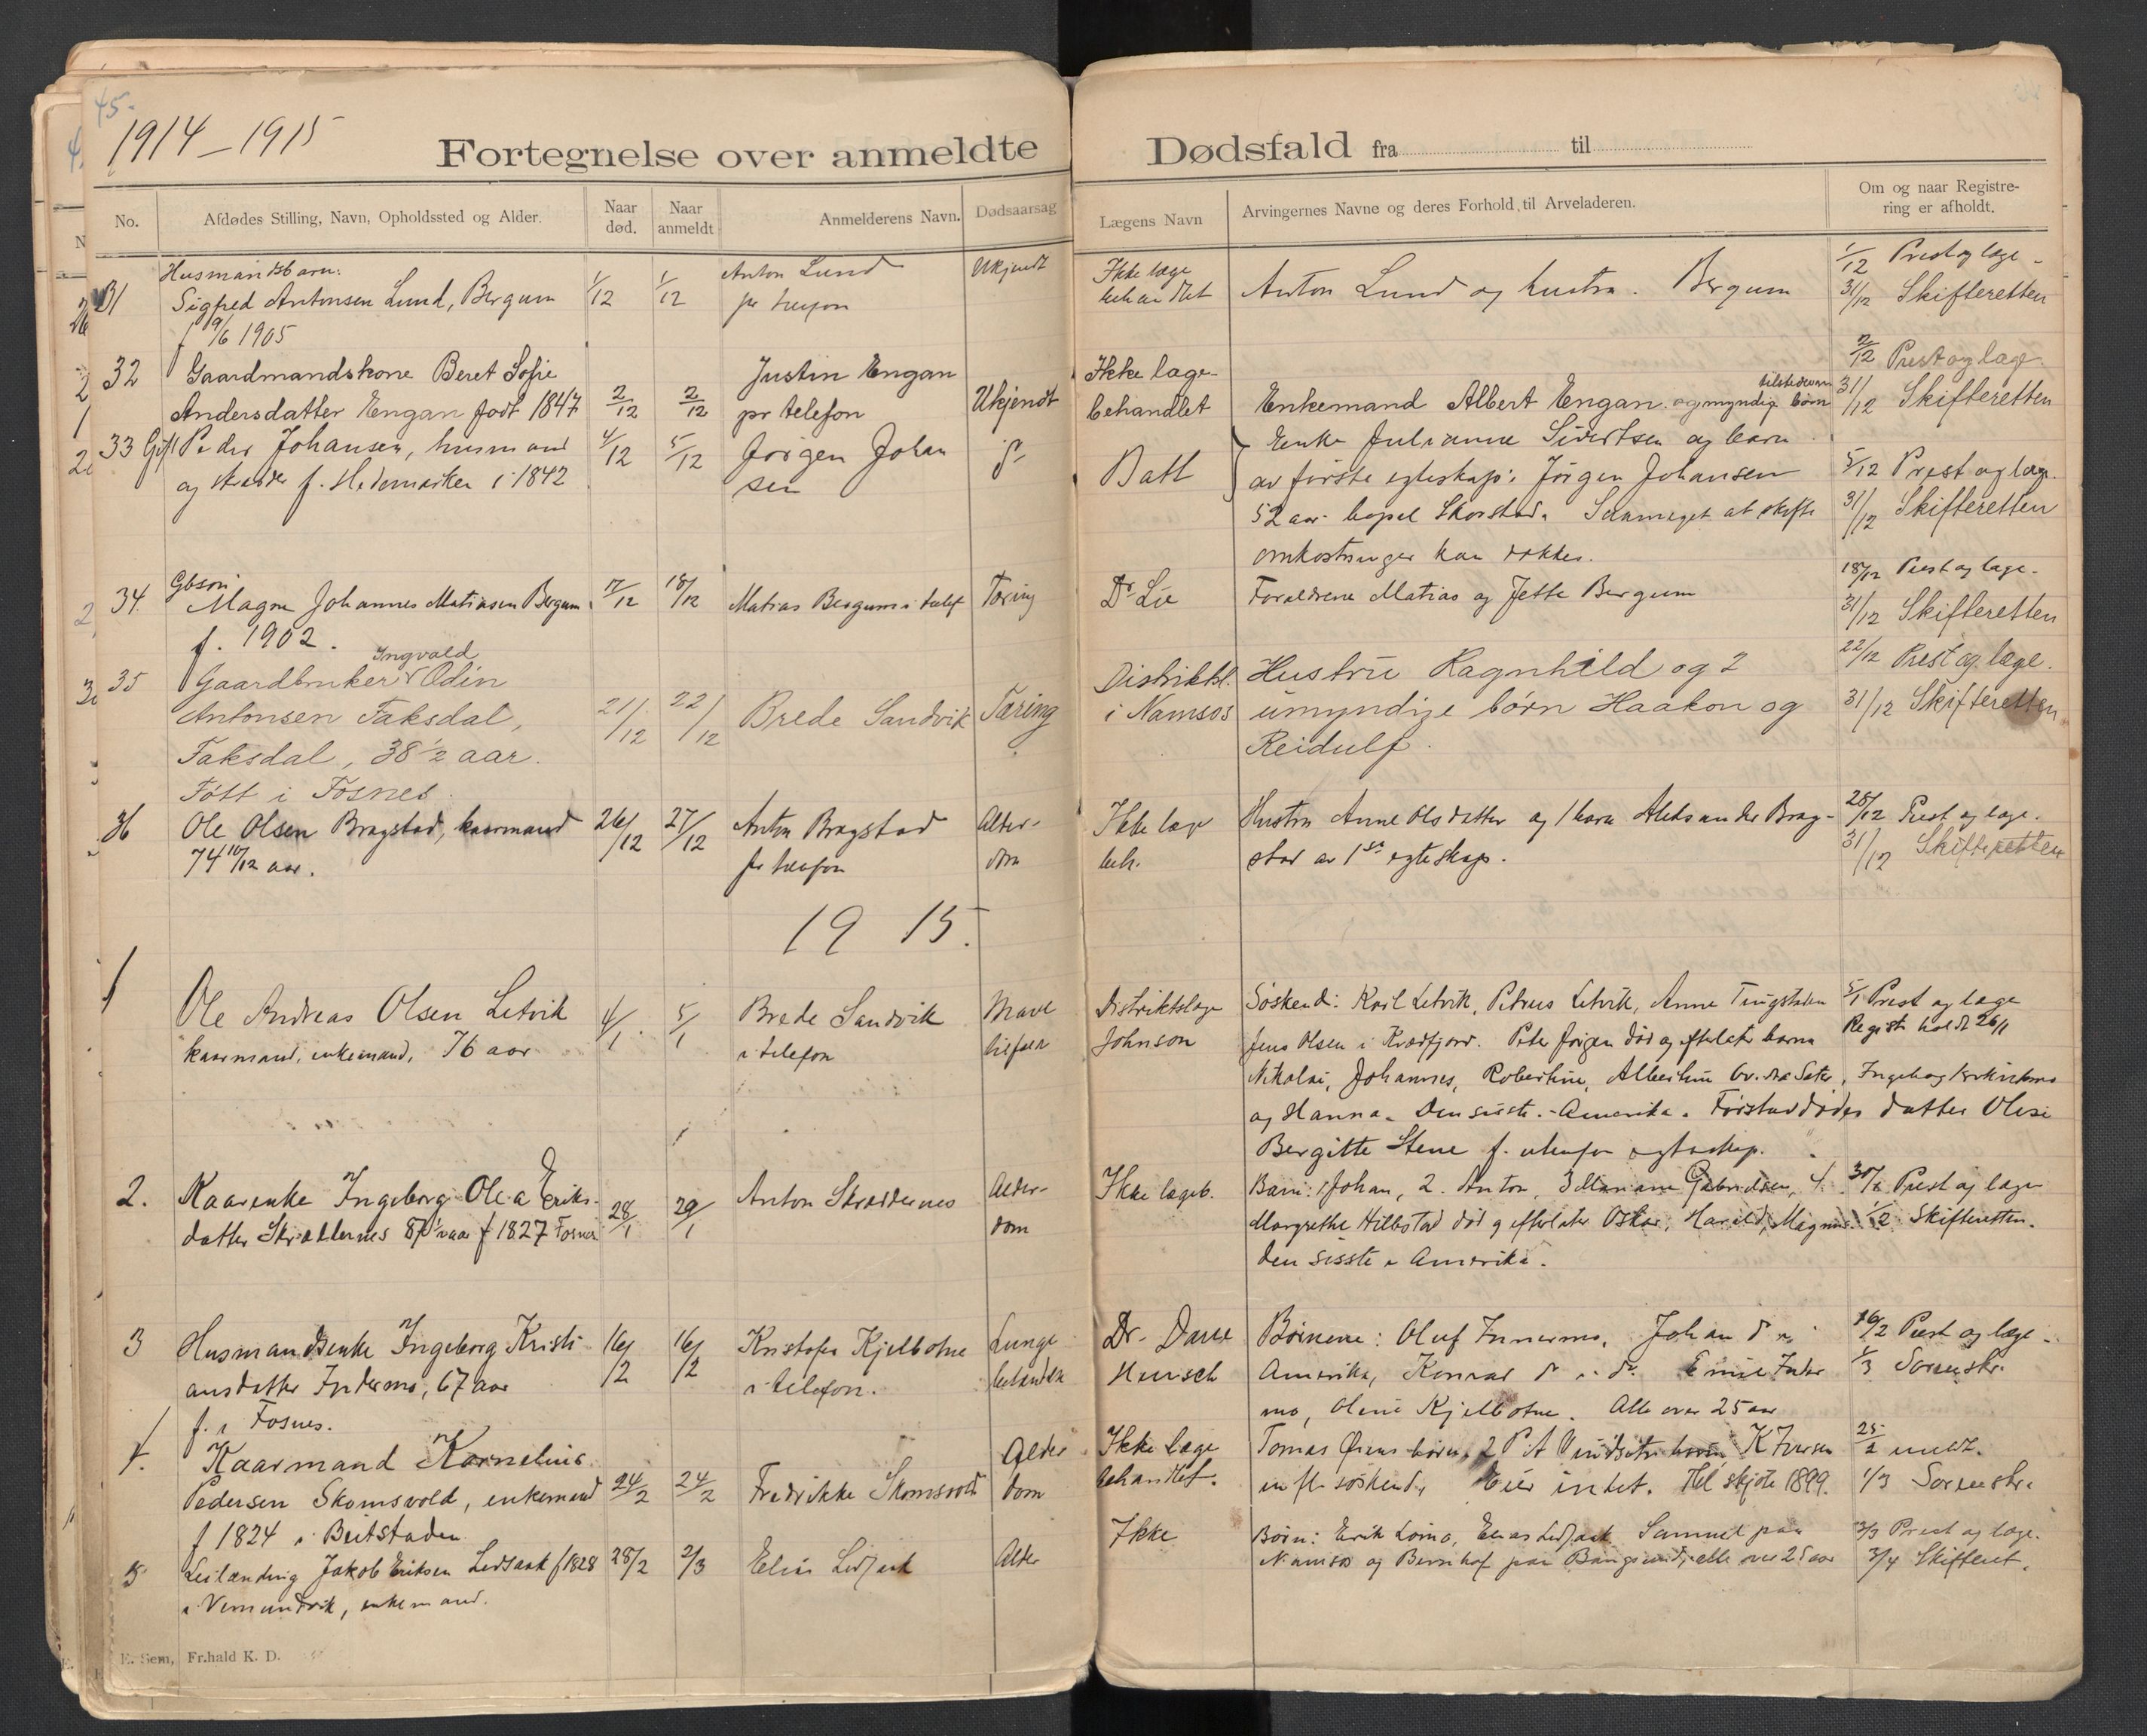 45.
1914–1915
Fortegnelse over anmeldte Dødsfald fra til
No.
Afdødes Stilling, Navn, Opholdssted og Alder.
Naar død.
Naar anmeldt
Anmelderens Navn.
Dødsaarsag
Lægens Navn
Arvingernes Navne og deres Forhold til Arveladeren.
Om og naar Registre-
ring er afholdt.
Husmandsbarn.
31 Sigfred Antonsen Lund, Bergum
f 9/6 1905
1/12
1/12
Anton Lund
pr telefon
Ukjendt
Ikke læge
behandlet
Anton Lund og hustru. Bergum
1/12 Prest og læge
31/12 Skifteretten
32 Gaardmandskone Beret Sofie
Andersdatter Engan født 1847
2/12
2/12
Justin Engan
pr telefon
Ukjendt
Ikke læge-
behandlet
Enkemand Albert Engan og myndige børn
2/12 Prest og læge
31/12 Skifteretten
33 Gift Peder Johansen, husmand
og f. Hedemarken i 1842
4/12
5/12
Jørgen Johan
sen
Datt
Enke Julianne Sivertsen og barn
av første egteskap: Jørgen Johansen
52 aar. bopel Skorstad. at skifte
omkostninger kan dækkes.
5/12 Prest og læge.
31/12 Skifteretten
34. Gbsøn
Magne Johannes Matiasen Bergum
f. 1902.
17/12
18/12
Matias Bergum i telef
Tæring
Dr Lie
Forældrene Matias og Jette Bergum
18/12 Prest og læge.
31/12 Skifteretten
35 Gaardbruker Ingvald Odin
Antonsen Faksdal,
Faksdal, 38 1/2 aar.
Født i Fosnes.
21/12
22/12
Brede Sandvik
Tæring
Distriktsl.
i Namsos
Hustru Ragnhild og 2
umyndige børn Haakon og
Reidulf.
22/12 Prest og læge.
31/12 Skifteretten
36 Ole Olsen Bragstad, kaarmand
74 10/12 aar.
26/12
27/12
Anton Bragstad
pr telefon
Alder-
dom
Ikke læge
beh.
Hustru Anne Olsdatter og 1 barn Aleksander Brag-
stad av 1ste egteskap.
28/12 Prest og læge.
31/12 Skifteretten
1915.
1
Ole Andreas Olsen Letvik
kaarmand, enkemand, 76 aar
4/1
5/1
Brede Sandvik
i telefon
Mave
Distriktslæge
Johnson
Søskend: Karl Letvik, Petrus Letvik, Anne
Jens Olsen i Kvædfjord. Peter Jørgen død og efterlater barna
Nikolai, Johannes, Robertine, Albertine
og Hanna. Den siste Amerika. datter
Bergitte Stene f. utenfor egteskap.
5/1 Prest og læge
Registr holdt 26/1
2. Kaarenke Ingeborg Olea Eriks-
datter 87 1/2 aar f 1827 Fosnes
28/1
29/1
Anton
Alder-
dom
Ikke lægeb.
Barn: 1 Johan, 2. Anton, 3 Mariane Gabrielsen, 4.
Margrethe Hilbstad død og efterlater Oskar, Harald, Magnus
den sisste i Amerika.
30/1 Prest og læge
1/2 Skifteretten.
3 Husmandsenke Ingeborg Kristi-
ansdatter Indermo, 67 aar
f. i Fosnes.
16/2
16/2
Kristofer Kjelbotne
i telefon.
Lunge
Dr. Daae
Hersch
Børnene: Oluf Innermo, Johan
Amerika, Konrad Emil Inder
mo, Oline Kjelbotne. Alle over 25 aar
16/2 Prest og læge.
1/3 Sorenskr.
4. Kaarmand Kornelius
Pedersen Skomsvold, enkemand
f 1824 i Beitstaden
24/2
24/2
Fredrikke Skomsvold
Alder
dom
Ikke læge
behandlet.
Tomas Øiens børn, 2 P. A K Iversen
en fl søskend. Eier intet. skjøte 1899.
25/2 meldt.
1/3 Sorenskr.
5 Leilænding Jakob Eriksen f 1828
i Vemundvik, enkemand.
28/2
2/3
Elias
Alder
Ikke
Børn: Erik Lona, Elias Samuel paa
Namsos og paa Bangsund, alle over 25 aar
2/3 Prest og læge.
3/4 Skifteret.
E. Sem, Fr.hald K. D.